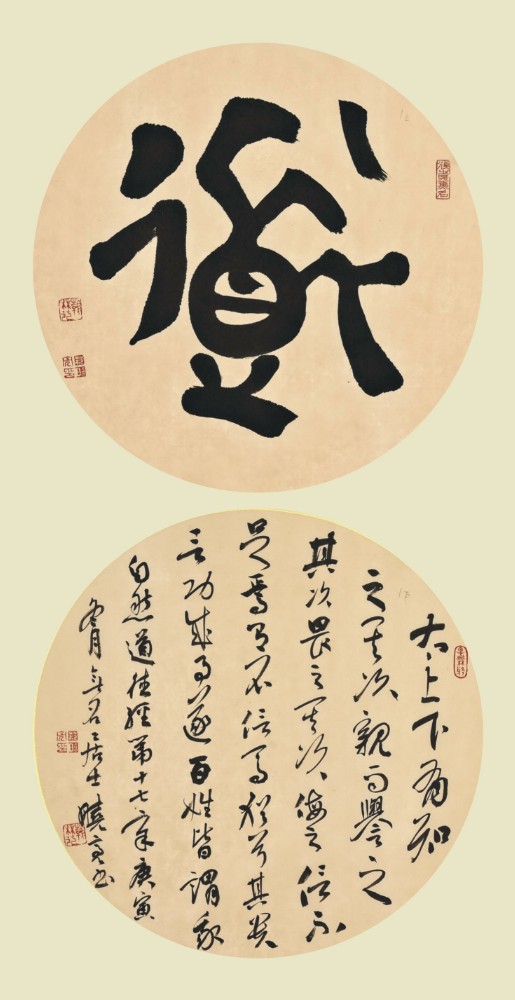 道
太上下有知
之其次親而譽之
其次畏之其次侮之信不
足焉有不信焉猶兮其貴
言功成事遂百姓皆謂我
自然道德經第十七章庚寅
冬月無名居士曉亮书